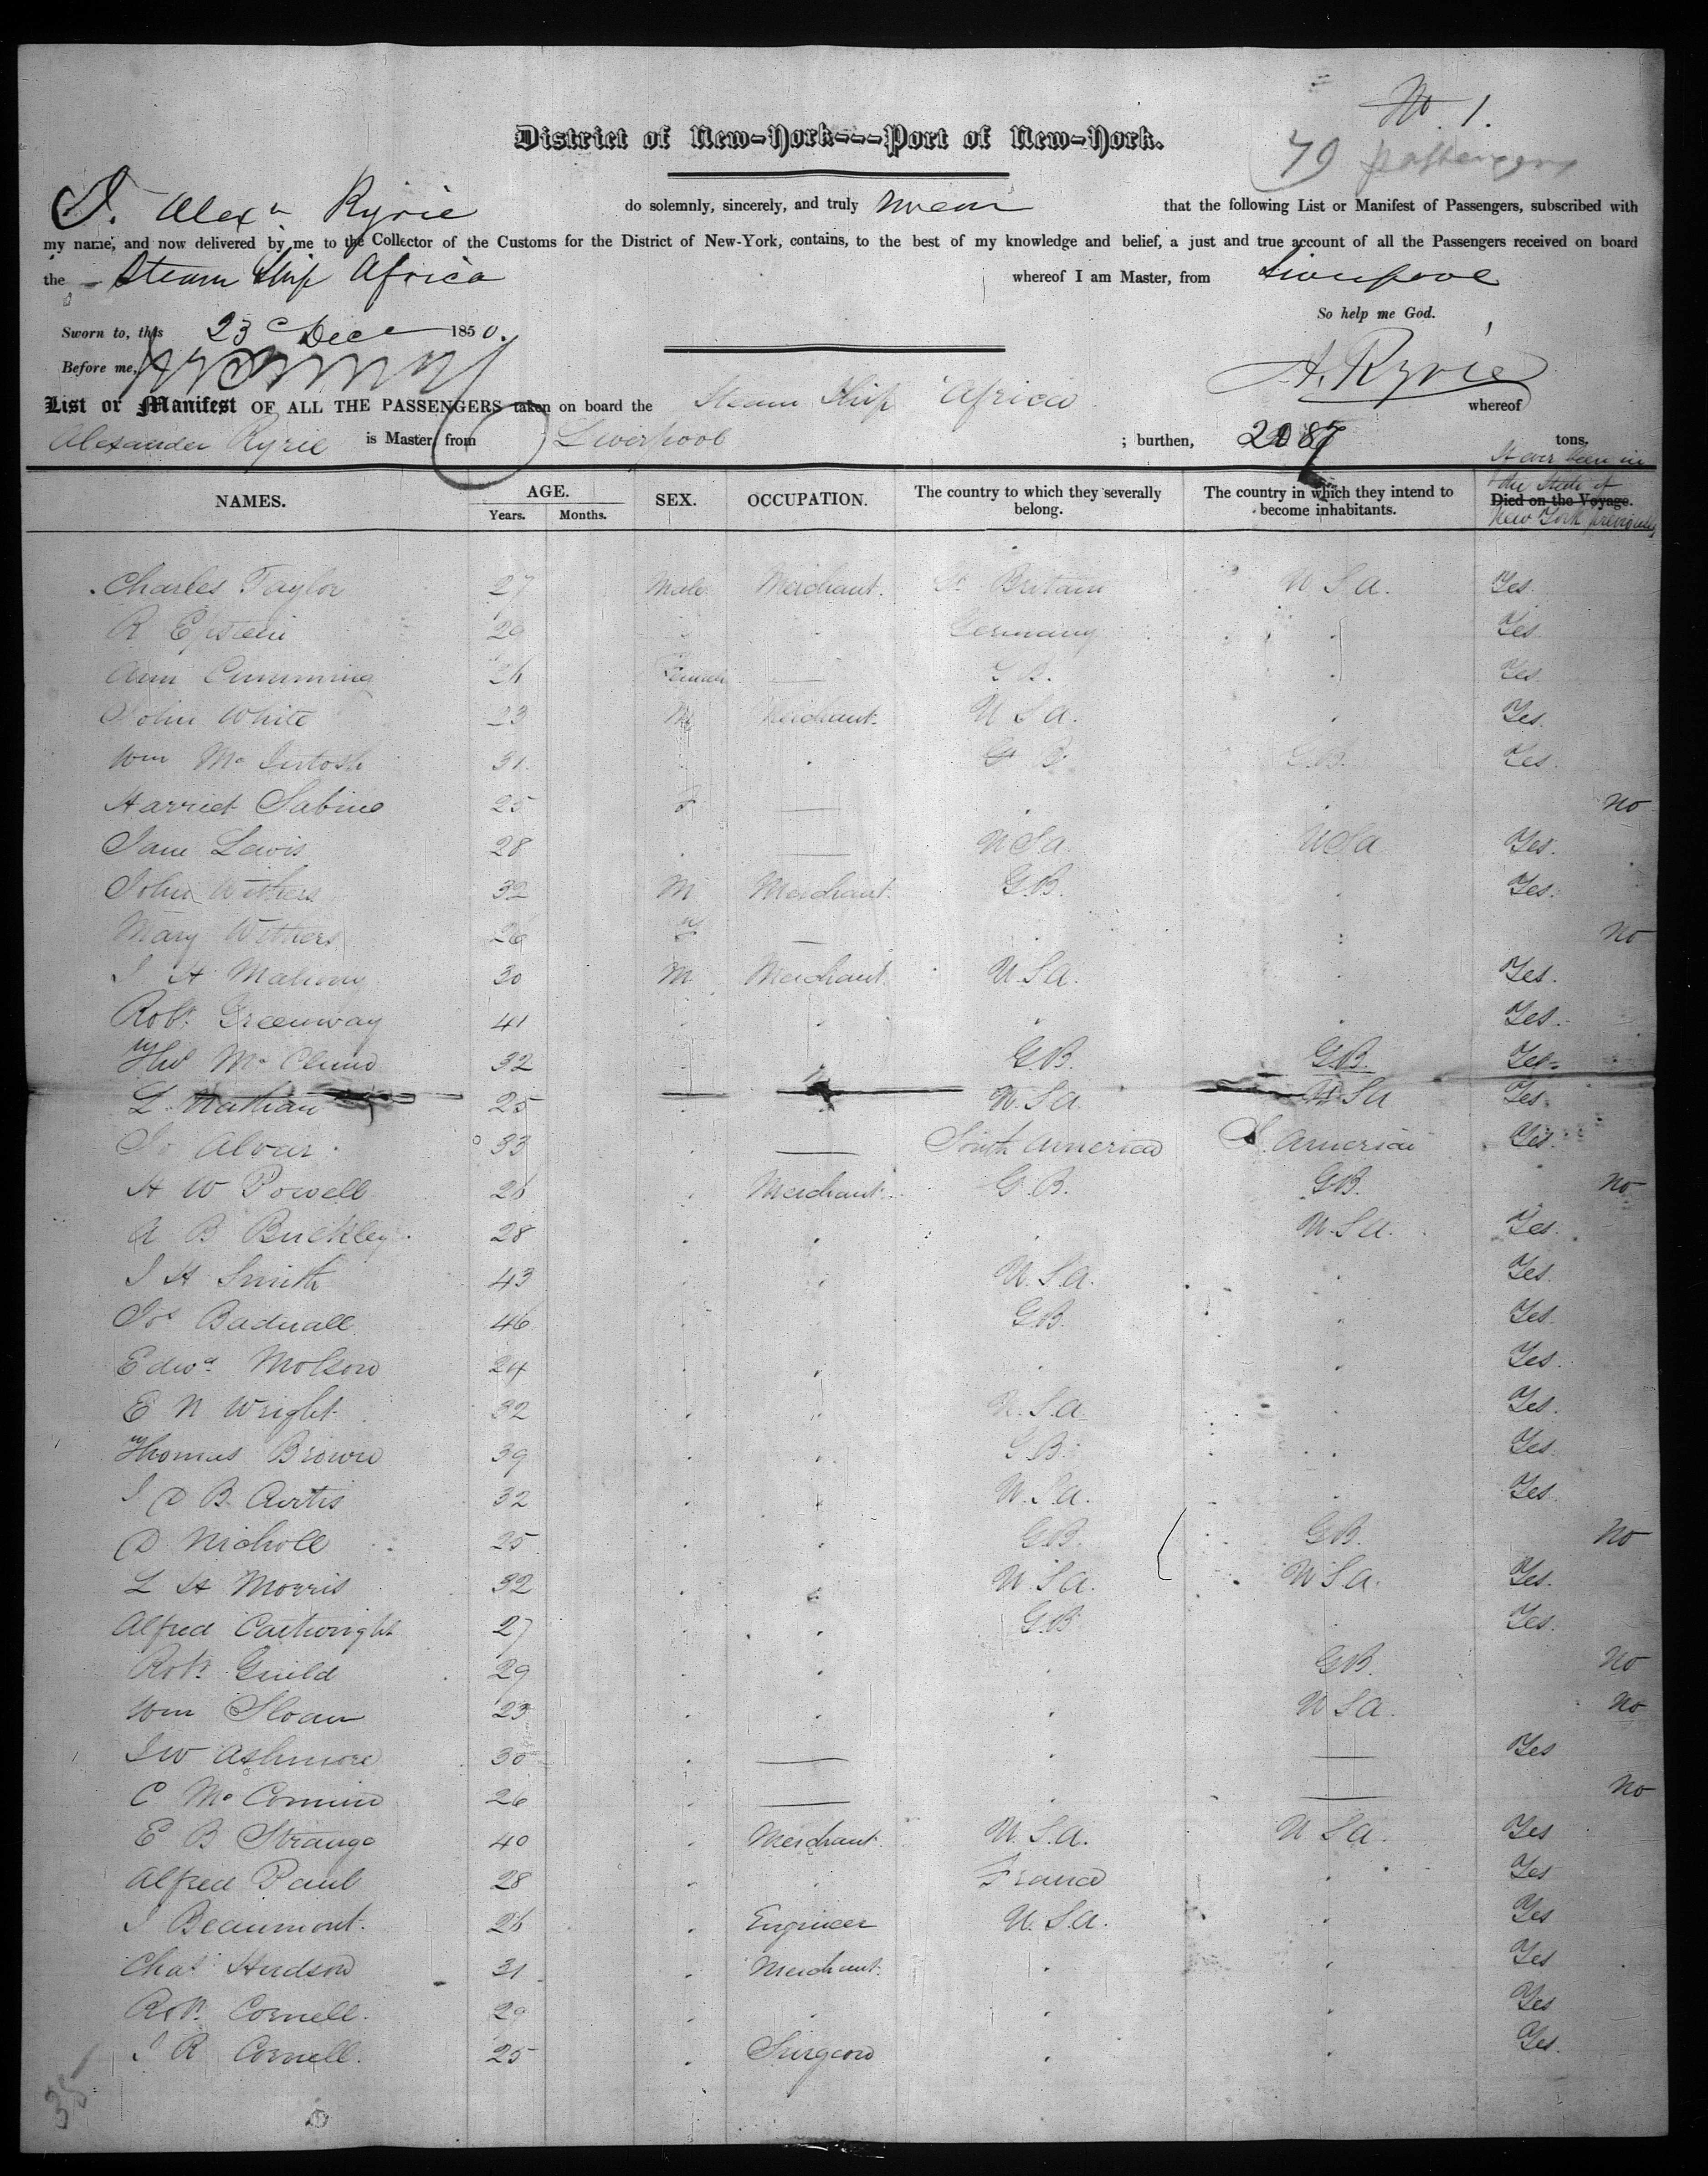 No. 1.
District of New-York---Port of New-York.
79 passengers
I, Alexr Ryrie do solemnly, sincerely, and truly swear that the following List or Manifest of Passengers, subscribed with
my name, and now delivered by me to the Collector of the Customs for the District of New-York, contains, to the best of my knowledge and belief, a just and true account of all the Passengers received on board
the Steam Ship Africa whereof I am Master, from Liverpool
So help me God.
Sworn to, this 23 Dec 1850.
Before me, A. Ryrie
List or Manifest OF ALL THE PASSENGERS taken on board the Steam Ship Africa whereof
Alexander Ryrie is Master, from Liverpool ; burthen, 2087 tons.
NAMES. AGE. Years. Months. SEX. OCCUPATION. The country to which they severally belong. The country in which they intend to become inhabitants. Died on the Voyage. If ever been in the State of New York previously
Charles Taylor 27 Male Merchant. Gt Britain U S A. Yes.
R Epstein 29 Germany Yes.
Ann Cumming 26 Female — G B. Yes.
John White 23 M Merchant. U S A. Yes.
Wm McIntosh 31 G B G.B. Yes.
Harriet Sabine 25 F — No
Jane Lewis 28 — U S A U S A Yes.
John Withers 32 M Merchant. G.B. Yes.
Mary Withers 26 F — No
J H Mahony 30 M Merchant. U.S.A. Yes.
Robt. Greenway 41 Yes.
32 G.B. G.B. Yes.
L. Nathan 25 U.S.A U S A Yes.
33 — South America S. America Yes.
H W Powell 26 Merchant. G.B. G.B. No
A B Buckley. 28 U.S.A. Yes.
J H Smith 43 U.S.A. Yes.
Jos Badnall 46 G.B. Yes.
Edwd. Molson 24 Yes.
E N Wright. 32 U.S.A. Yes.
Thomas Brown 39 G.B. Yes.
J D B Curtis 32 U.S.A. Yes.
D Nicholl 25 G.B. G.B. No
L H Morris 32 U.S.A. U S A. Yes.
Alfred Cartwright 27 G.B. Yes.
Robt. Guild 29 G.B. No
Wm Sloan 23 U S A. No
J W Ashmore 30 — — Yes
26 — — No
E B Strange 40 Merchant. U.S.A. U S A. Yes
Alfred Paul 28 France Yes
J Beaumont. 26 Engineer U.S.A. Yes
Chas. Hudson 31 Merchant. Yes
Robt. Cornell. 29 Yes
J R Cornell. 25 Surgeon Yes.
35